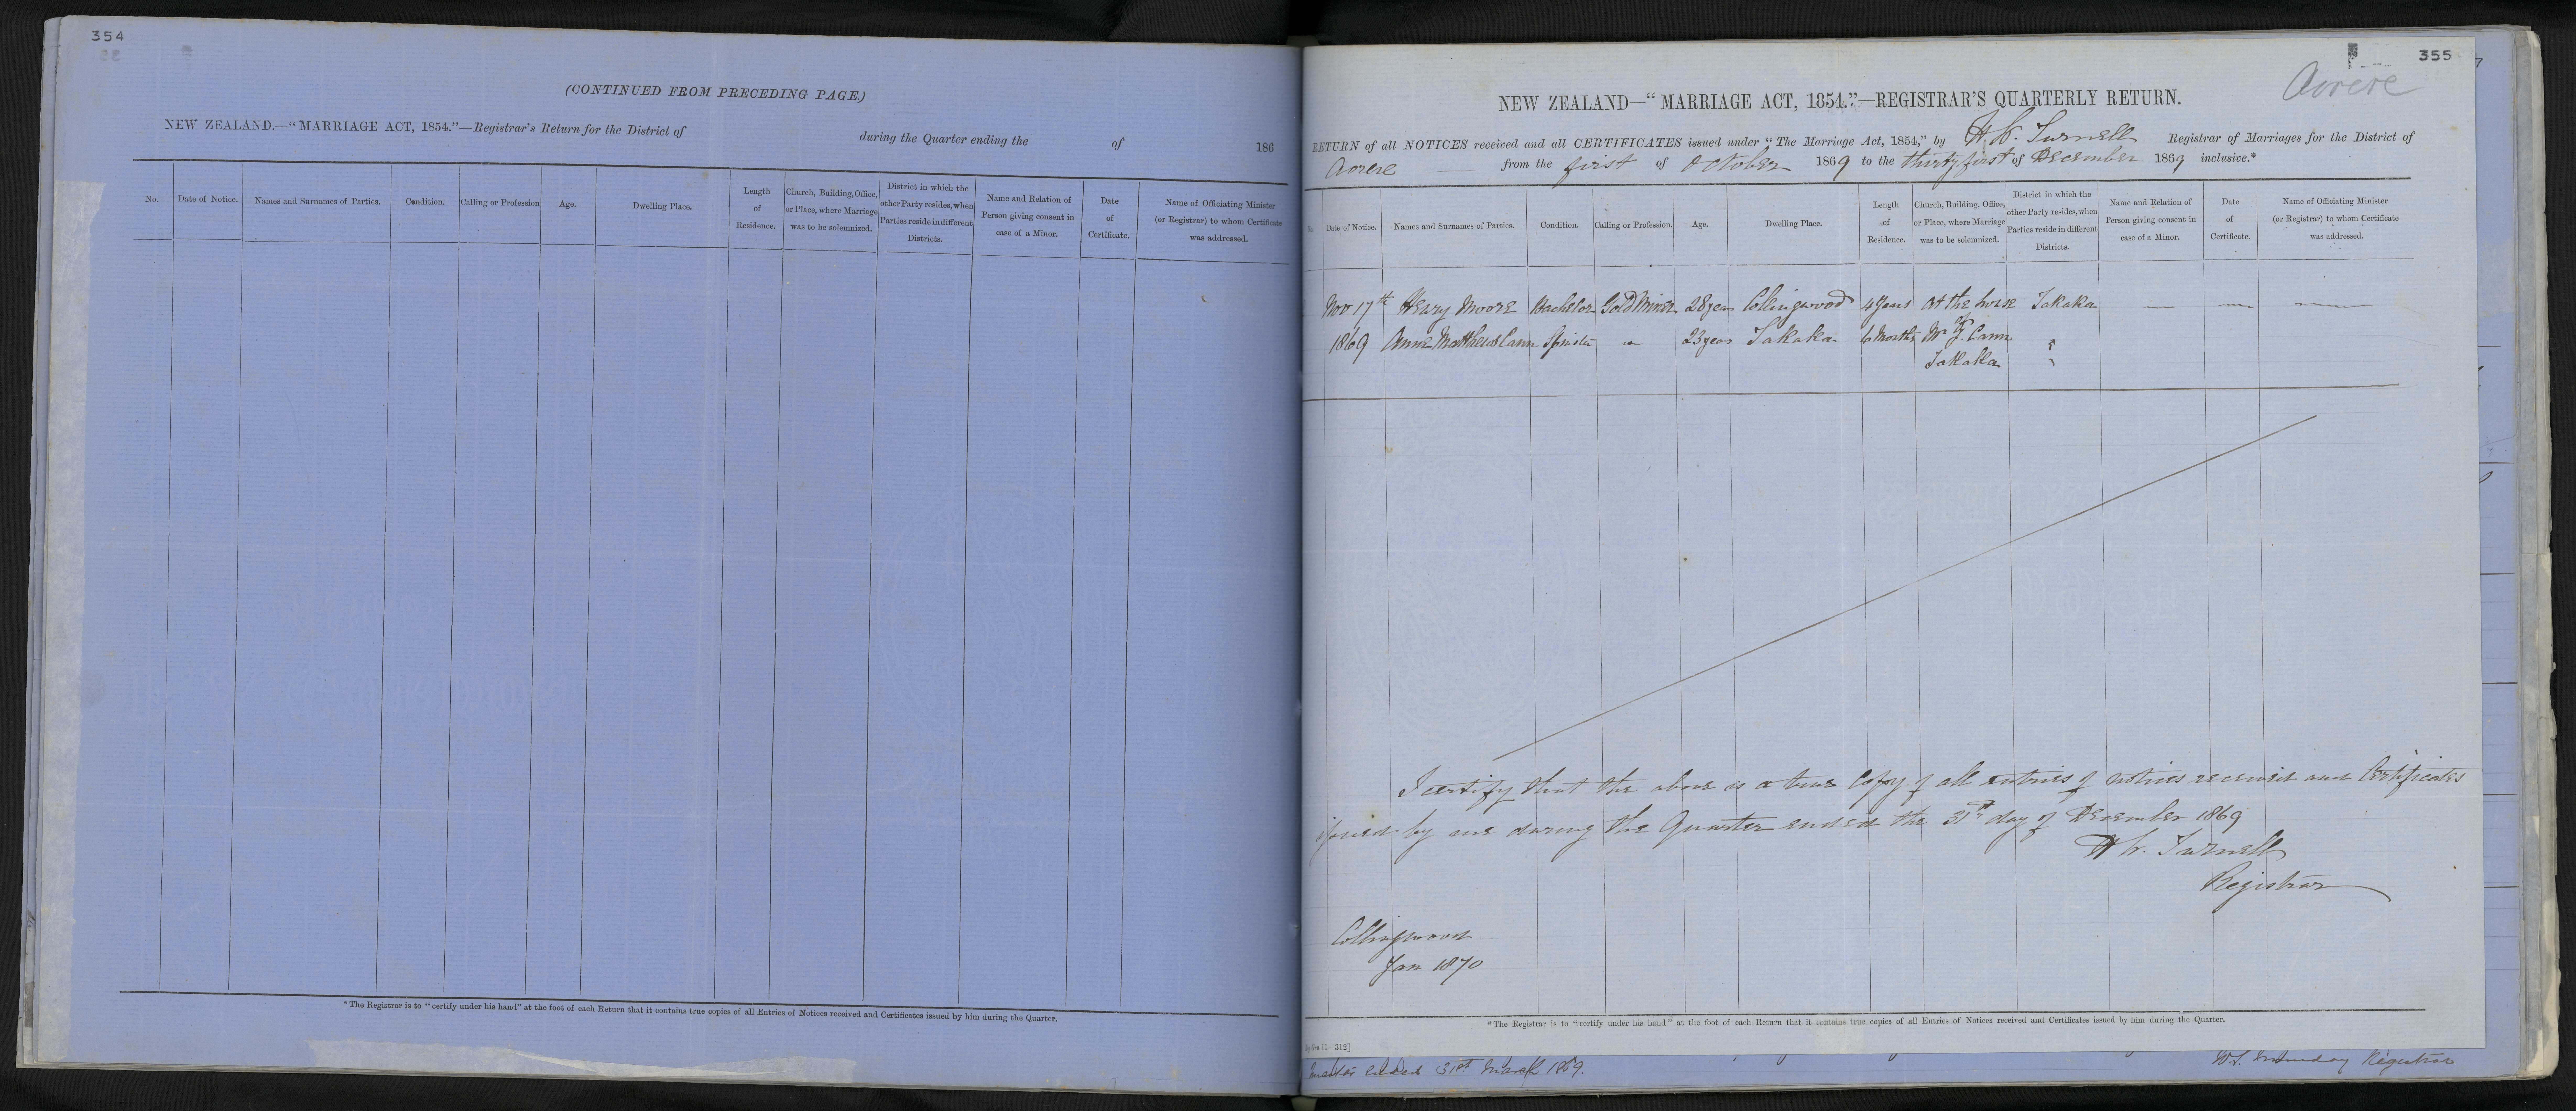 354
(CONTINUED FROM PRECEDING PAGE.)
NEW ZEALAND.—"MARRIAGE ACT, 1854."—Registrar's Return for the District of during the Quarter ending the of 186
No. Date of Notice. Names and Surnames of Parties. Condition. Calling or Profession Age. Dwelling Place. Length of Residence. Church, Building, Office, or Place, where Marriage was to be solemnized. District in which the other Party resides, when Parties reside in different Districts. Name and Relation of Person giving consent in case of a Minor. Date of Certificate. Name of Officiating Minister (or Registrar) to whom Certificate was addressed.
*The Registrar is to "certify under his hand" at the foot of each Return that it contains true copies of all Entries of Notices received and Certificates issued by him during the Quarter.
355
Aorere
NEW ZEALAND—"MARRIAGE ACT, 1854."—REGISTRAR'S QUARTERLY RETURN.
RETURN of all NOTICES received and all CERTIFICATES issued under "The Marriage Act, 1854," by H W. Turnell Registrar of Marriages for the District of
Aorere from the first of October 1869 to the thirty first of December 1869 inclusive.*
Date of Notice. Names and Surnames of Parties. Condition. Calling or Profession. Age. Dwelling Place. Length of Residence. Church, Building, Office, or Place, where Marriage was to be solemnized. District in which the other Party resides, when Parties reside in different Districts. Name and Relation of Person giving consent in case of a Minor. Date of Certificate. Name of Officiating Minister (or Registrar) to whom Certificate was addressed.
Nov 17th Henry Moore Bachelor Gold Miner 28 years Collingwood 4 years At the house Takaka — — —
of
1869 Anne Matthews Cann Spinster " 23 years Takaka 6 Months Mr J. Cann "
Takaka "
I certify that the above is a true Copy of all entries of notices received and Certificates
issued by me during the Quarter ended the 31st day of December 1869
H W. Turnell
Registrar
Collingwood
Jan 1870
*The Registrar is to "certify under his hand" at the foot of each Return that it contains true copies of all Entries of Notices received and Certificates issued by him during the Quarter.
11—312]
Quarter ended 31st March 1869. Registrar